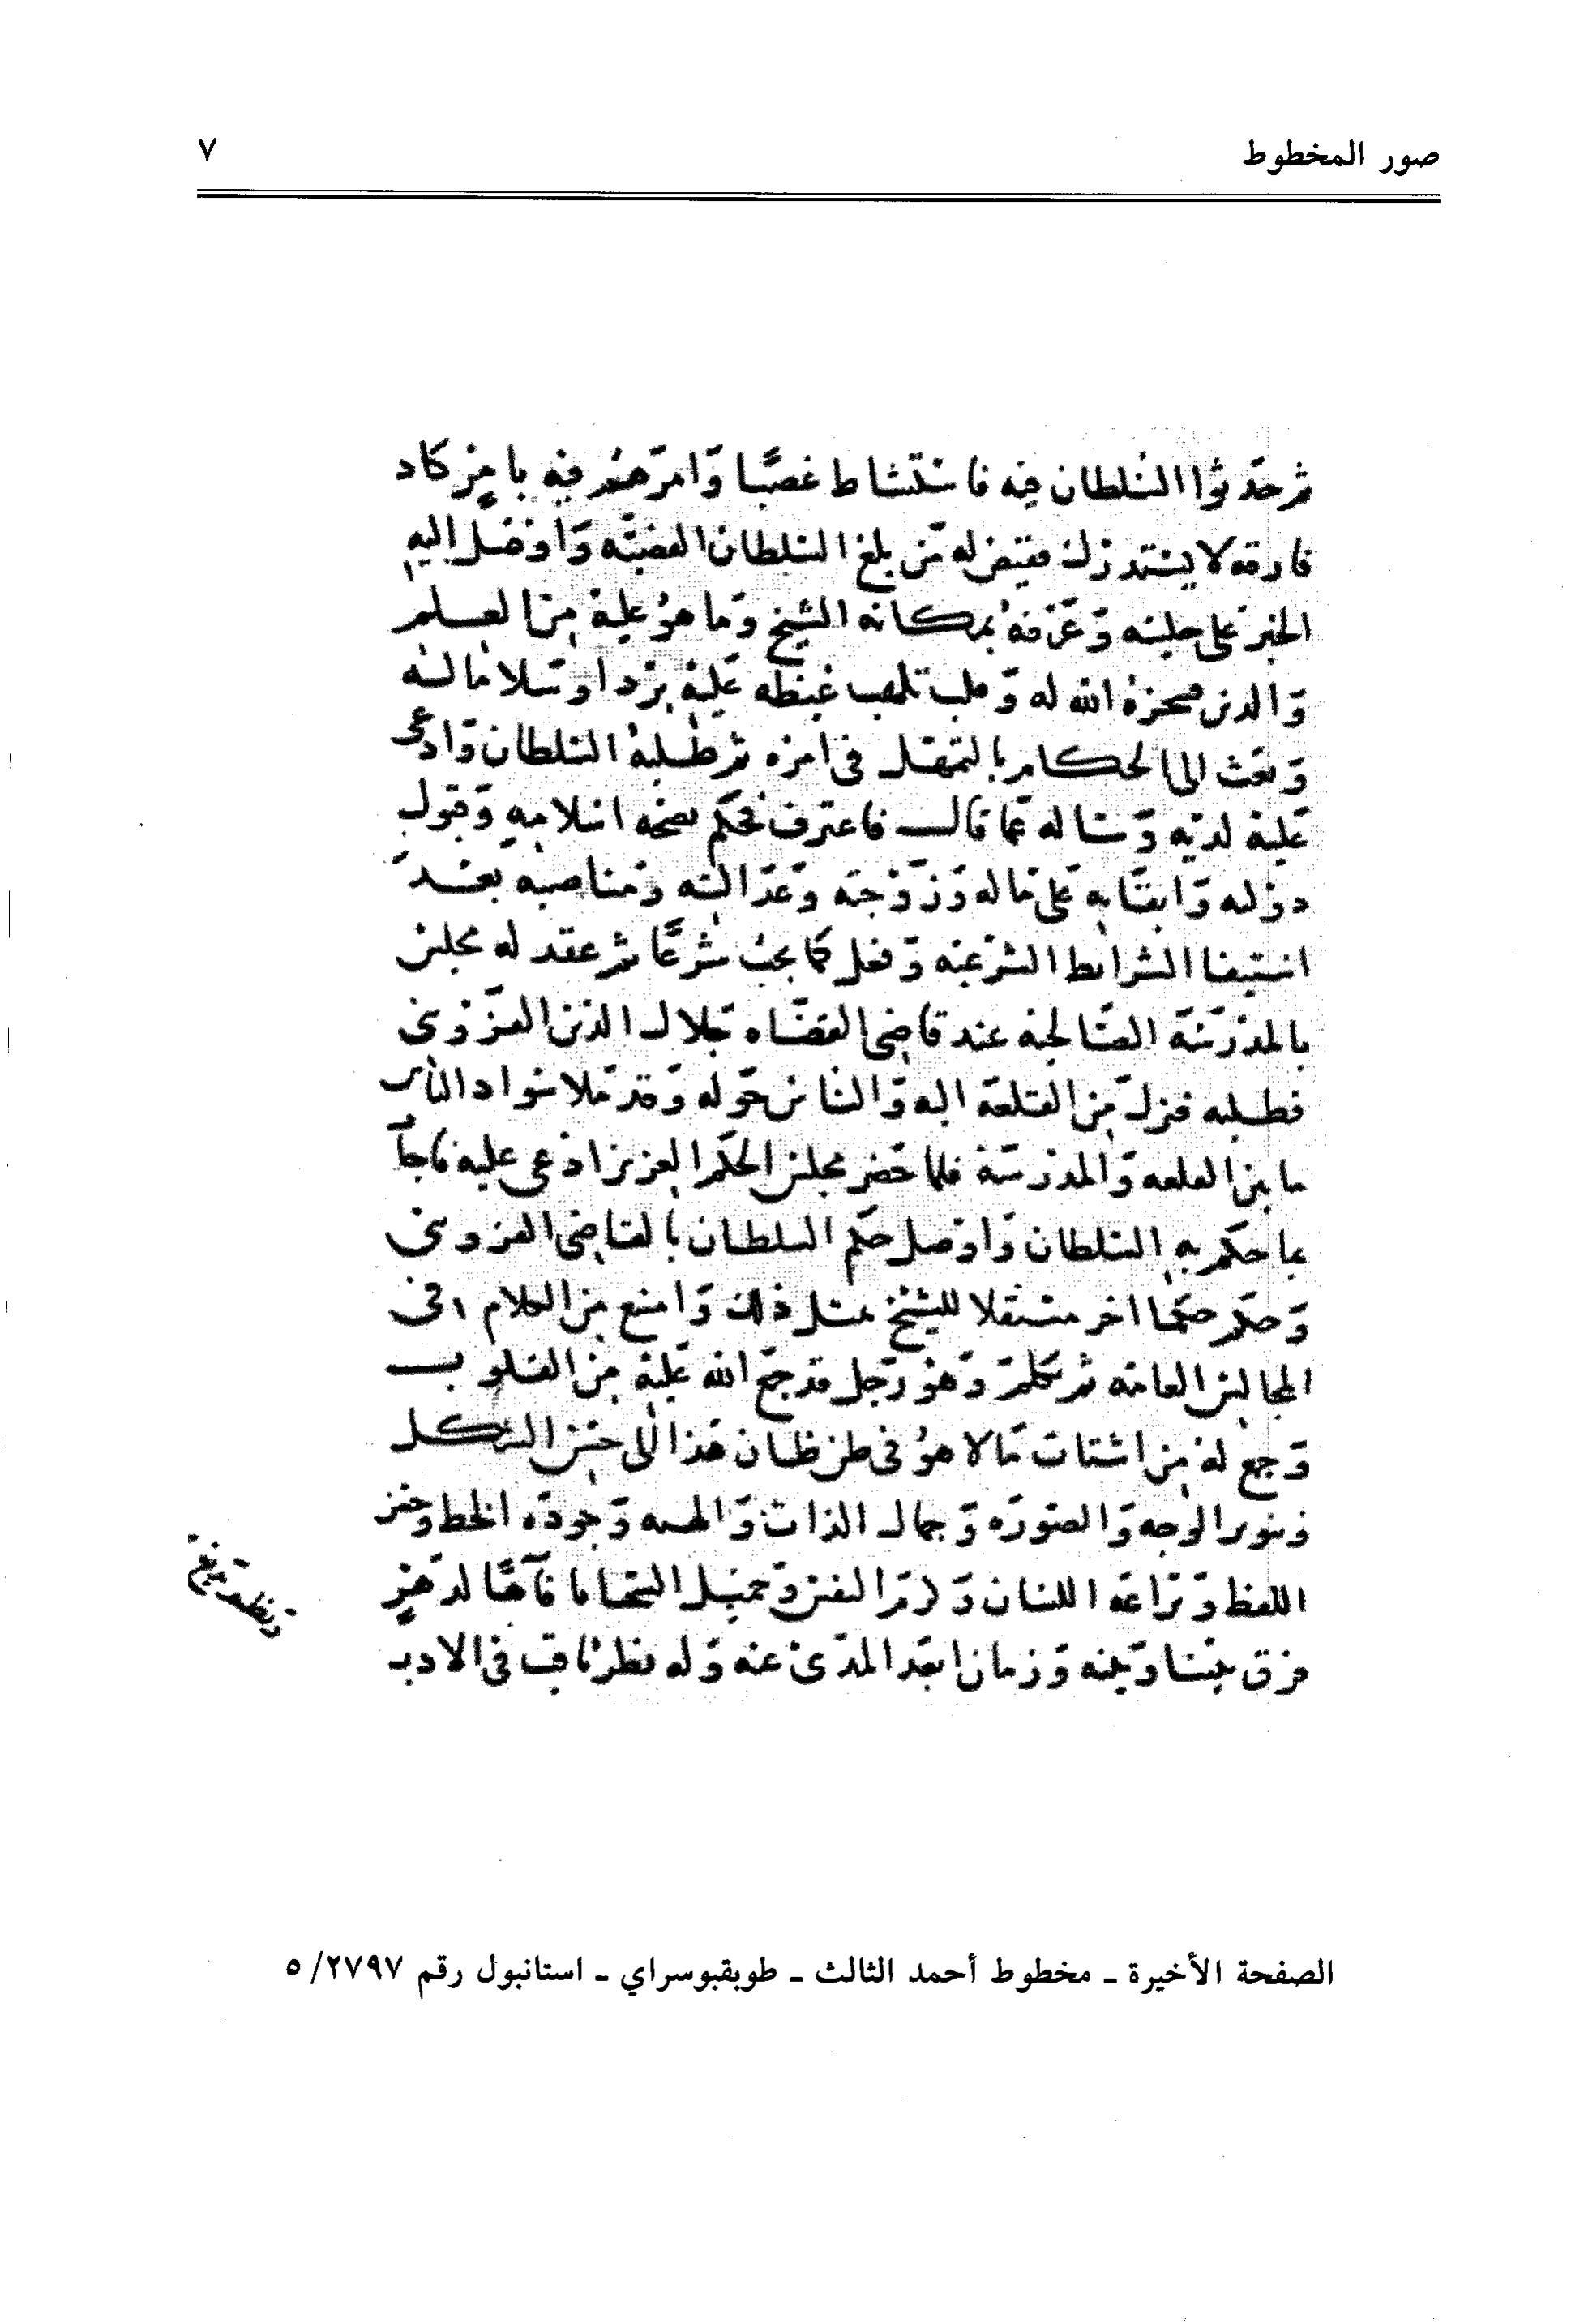 صور المخطوط
٧
ثم حدثوا السلطان فيه فاستشاط غضبا وامرهم فيه بامر كاد
فارقه لا يستدرك فقيض له من بلغ السلطان القضيه واوصل اليه
الخبر على جليته وعرفه بمكانه الشيخ وما هو عليه من العلم
والدين فحجزه الله له وقلب تلهب غيظه عليه بردا وسلاما لسه
وبعث الى الحكام بالتمهل في امره ثم طلبه السلطان وادعى
عليه لديه وساله عما قال فاعترف فحكم بصحه اسلامه وقبول
دوله وابقائه على ماله وزوجته وعدالته ومناصبه بعد
استيفا الشرايط الشرعيه وفعل كما يجب شرعا ثم عقد له مجلس
بالمدرسه الصالحيه عند قاضي القضاه جلال الدين القزويني
فطلبه فنزل من القلعه اليه والناس حوله وقد ملا سواد الناس
ما بين القلعه والمدرسه فلما حضر مجلس الحكم العزيز ادعى عليه فاجاب
بما حكم به السلطان واوصل حكم السلطان بالقاضي القزويني
وحكم حكما اخر مستقلا للشيخ بمثل ذلك وامنع من الكلام في
المجالس العامه ثم تكلم وهو رجل قد جمع الله عليه من القلوب
وجمع له من اشتات ما لا هو في طن ظان هذا الى حسن الشكل
وتنوير الوجه والصوره وجمال الذات والهيه وجوده الخط وحسن
اللفظ وبراعه اللسان وكرم النفس وجميل السجايا فآها لدهر
فرق بيننا وبينه وزمان ابعد المدى عنه وله نظر ثاقب في الادب
الصفحة الأخيرة ـ مخطوط أحمد الثالث ـ طوبقبوسراي ـ استانبول رقم ٢٧٩٧/ ٥